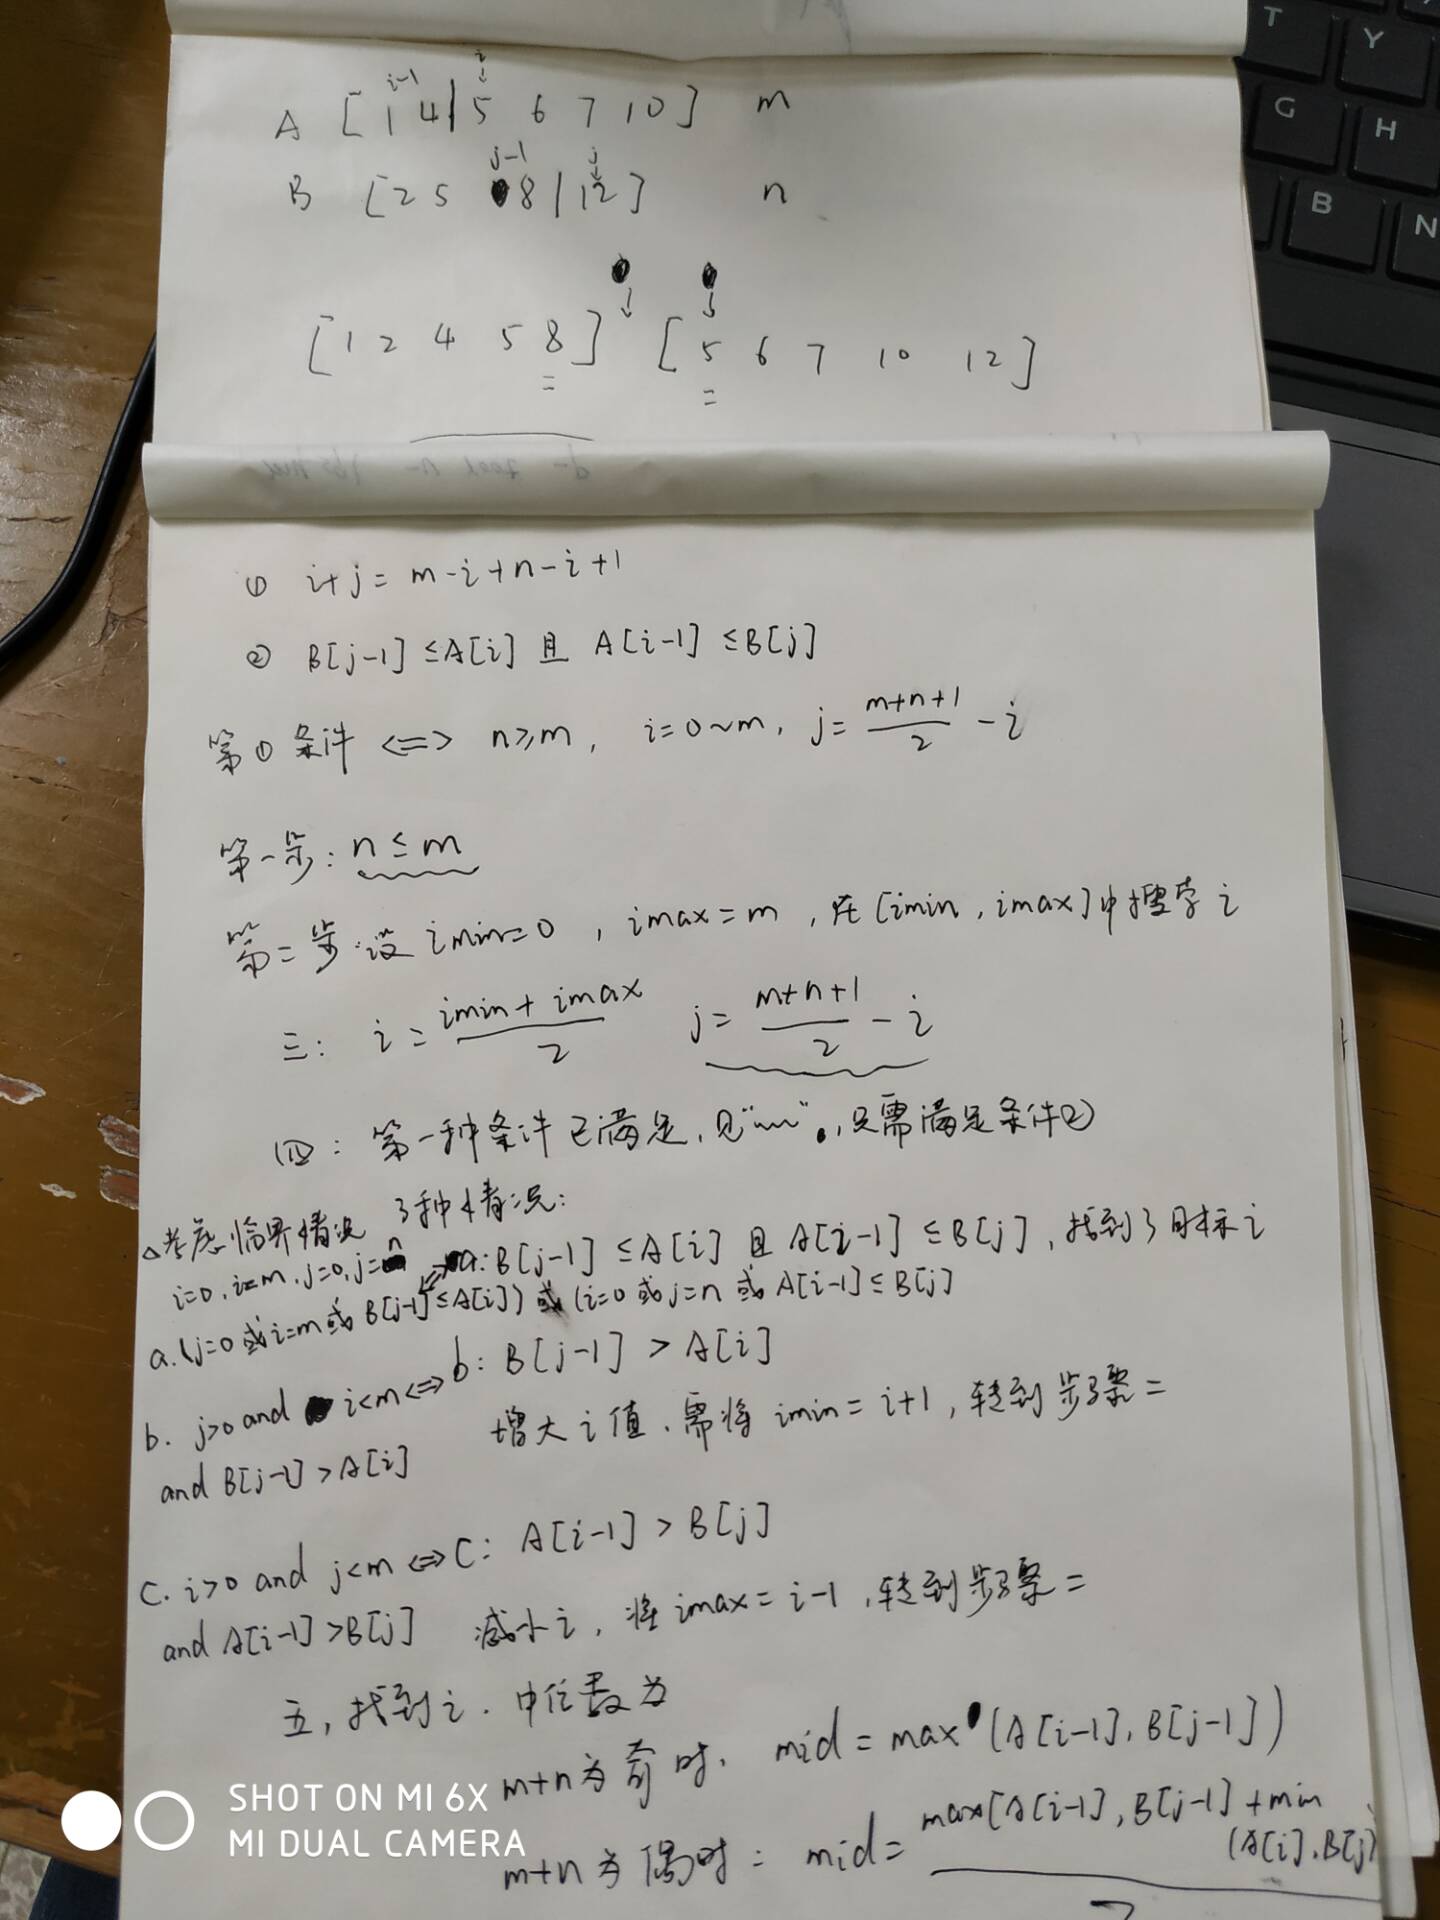 i-1 i
A [1 4 | 5 6 7 10] m
j-1 j
B [2 5 8 | 12] n
[1 2 4 5 8] [5 6 7 10 12]
① i+j = m-i+n-i+1
② B[j-1] ≤A[i] 且 A[i-1] ≤B[j]
第①条件 <=> n≥m, i=0~m, j= (m+n+1)/2 - i
第一步: n≤m
第二步:设 imin=0, imax=m, 在[imin, imax]中搜索 i
三: i = (imin+imax)/2 j= (m+n+1)/2 - i
四: 第一种条件已满足,见"﹏",只需满足条件②
3种情况:
△考虑临界情况
i=0, i=m, j=0, j=n
a: B[j-1] ≤A[i] 且 A[i-1] ≤B[j], 找到了目标 i
a. (j=0 或 i=m 或 B[j-1] ≤A[i]) 或 (i=0 或 j=n 或 A[i-1] ≤B[j]
b. j>0 and i<m <=> b: B[j-1] > A[i]
and B[j-1] >A[i] 增大 i 值, 需将 imin = i+1, 转到步骤二
c. i>0 and j<m <=> C: A[i-1] > B[j]
and A[i-1] >B[j] 减小 i, 将 imax = i-1, 转到步骤二
五, 找到 i. 中位数为
m+n为奇时, mid = max (A[i-1], B[j-1])
m+n为偶时: mid = (max[A[i-1], B[j-1] + min (A[i], B[j])/2
SHOT ON MI 6X
MI DUAL CAMERA
T Y
G H
B N